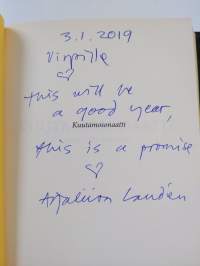 3.1.2019
Virpille
♡
this will be
a good year,
Kuutamosonaatti
this is a promise
♡
Anja Lauden